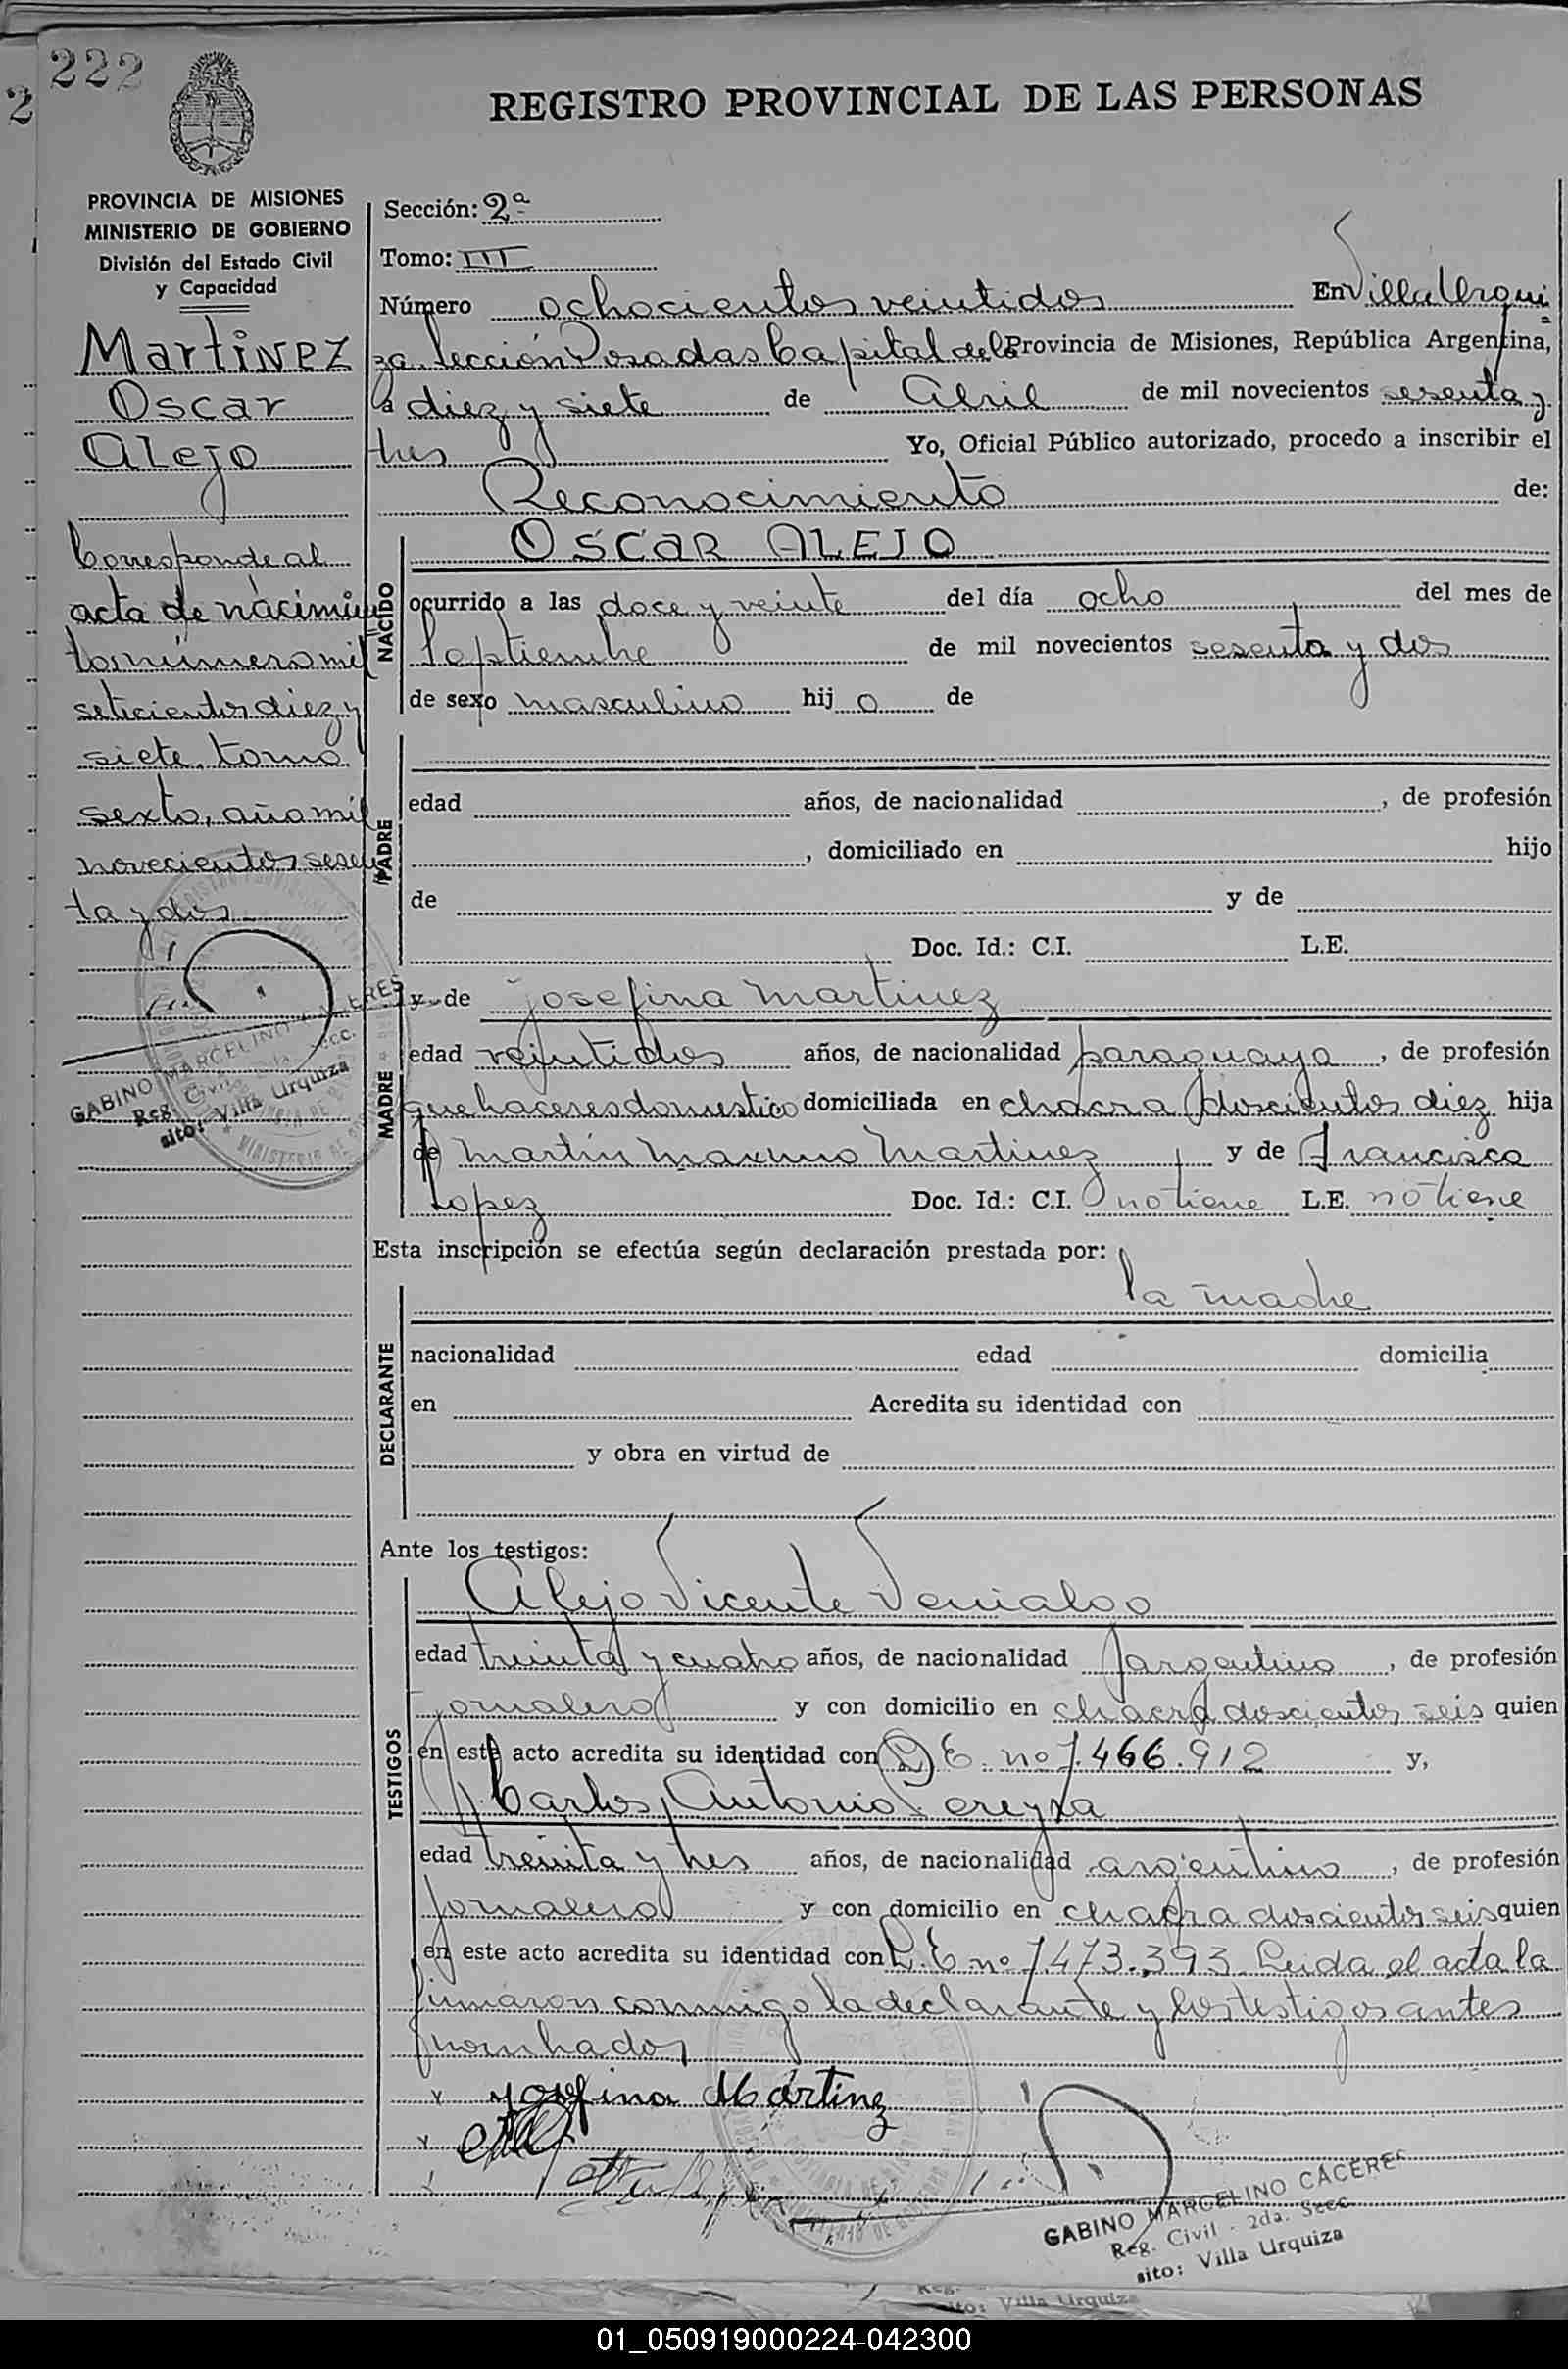 222
2
REGISTRO PROVINCIAL DE LAS PERSONAS
PROVINCIA DE MISIONES
MINISTERIO DE GOBIERNO
División del Estado Civil
y Capacidad
Martinez
Oscar
Alejo
Corresponde al
acta de nacimien
to número mil
seticientos diez y
siete, tomo
sexto, año mil
novecientos sesen
ta y dos
GABINO MARCELINO CACERES
Reg. Civil 2da. Secc.
sito: Villa Urquiza
Sección: 2ª
Tomo: III
Número ochocientos veintidos En Villa Urqui
za Sección Posadas Capital de la Provincia de Misiones, República Argentina,
a diez y siete de Abril de mil novecientos sesenta y
tres Yo, Oficial Público autorizado, procedo a inscribir el
Reconocimiento de:
NACIDO
OSCAR ALEJO
ocurrido a las doce y veinte del día ocho del mes de
Septiembre de mil novecientos sesenta y dos
de sexo masculino hij o de
PADRE
edad años, de nacionalidad , de profesión
, domiciliado en hijo
de y de
Doc. Id.: C.I. L.E.
MADRE
y de Josefina Martinez
edad veintidos años, de nacionalidad paraguaya , de profesión
quehaceres domestico domiciliada en chacra doscientos diez hija
de Martin Maximo Martinez y de Francisca
Lopez Doc. Id.: C.I. no tiene L.E. no tiene
Esta inscripción se efectúa según declaración prestada por:
la madre
DECLARANTE
nacionalidad edad domicilia
en Acredita su identidad con
y obra en virtud de
Ante los testigos:
TESTIGOS
Alejo Vicente Venialgo
edad treinta y cuatro años, de nacionalidad argentino , de profesión
jornalero y con domicilio en chacra doscientos seis quien
en este acto acredita su identidad con L.E. no 7.466.912 y,
Carlos Antonio Pereyra
edad treinta y tres años, de nacionalidad argentino , de profesión
jornalero y con domicilio en chacra doscientos seis quien
en este acto acredita su identidad con L.E. no 7.473.393 Leida el acta la
firmaron conmigo la declarante y los testigos antes
nombrados
Josefina Martinez
GABINO MARCELINO CACERES
Reg. Civil - 2da. Secc.
sito: Villa Urquiza
sito: Villa Urquiza
01_050919000224-042300